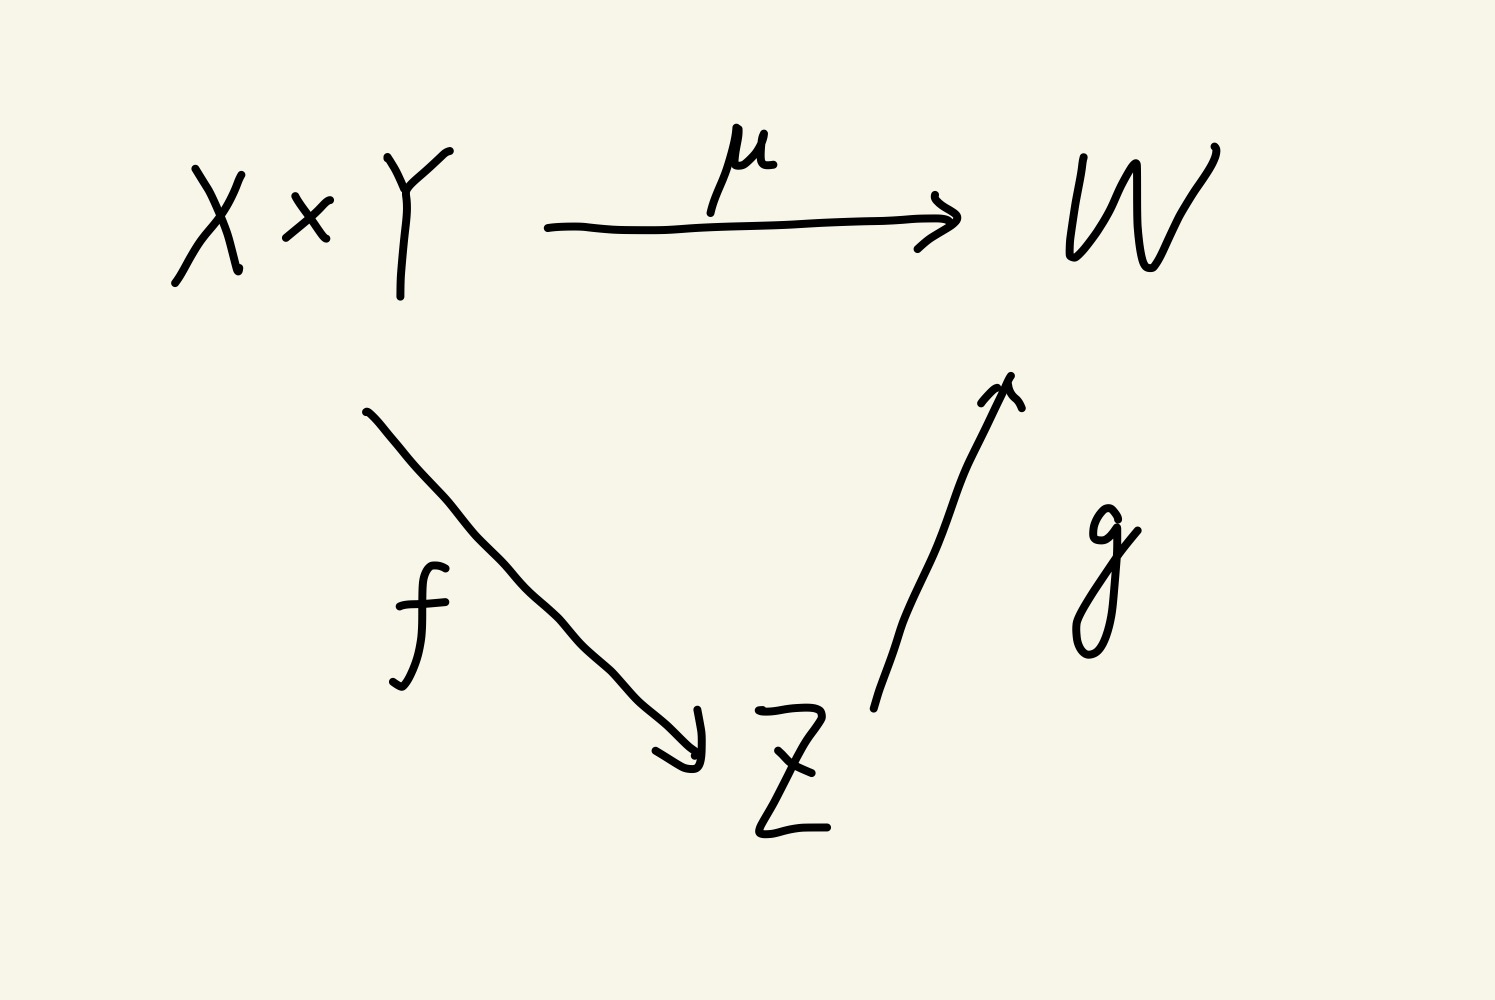 X × Y μ W
f g
Z